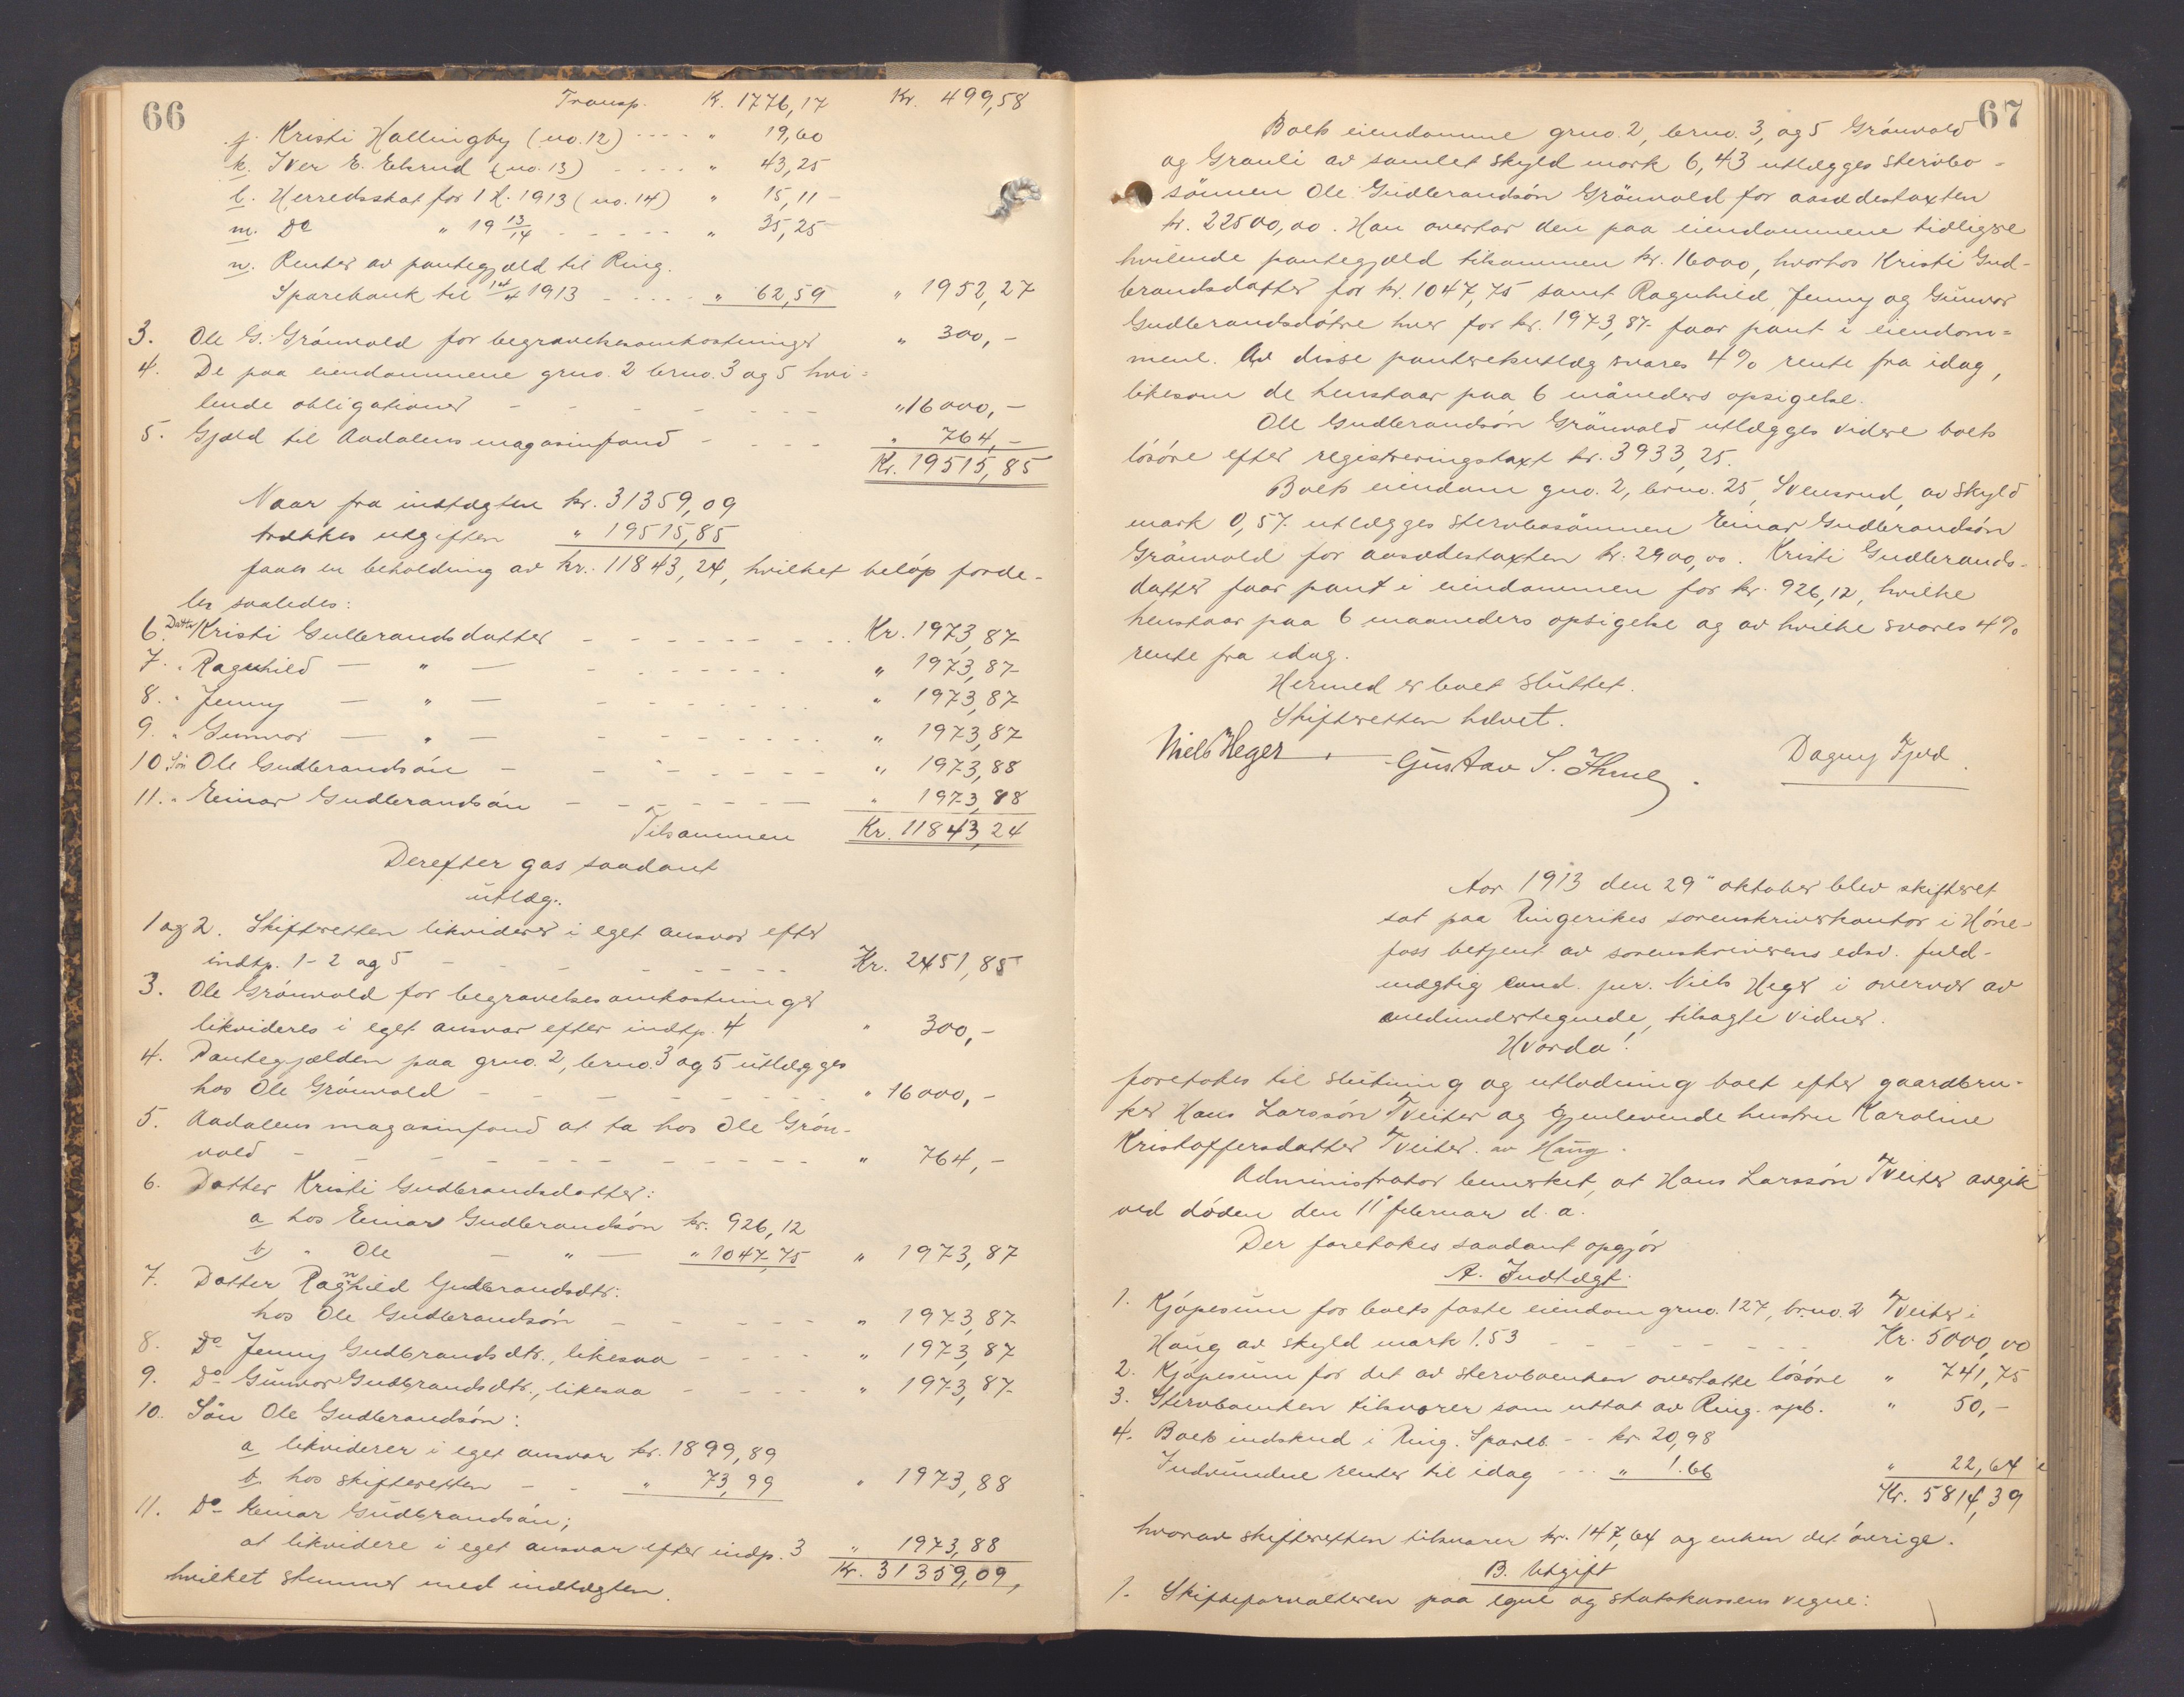 66
Transp. K. 1776,17 Kr. 499,58
j. Kristi Hallingby (no. 12) - - - - " 19,60
k. Iver E. Elsrud (no. 13) - - - - " 43,25
l. Herredsskat for 1 H. 1913 (no. 14) " 15,11 -
m. Do " 19 13/14 - - - - - " 35,25
n. Renter av pantegjæld til Ring.
Sparebank til 14/4 1913 - - - - " 62,59 " 1952,27
3. Ole G. Grönvold for begravelsesomkostninger " 300,-
4. De paa eiendommene grno. 2 brno. 3 og 5 hvi-
lende obligationer - - - - - - - " 16000,-
5. Gjæld til Aadalens magasinfond - - - - " 764,-
Kr. 19515,85
Naar fra indtægten kr. 31359,09
trækkes utgiften " 19515,85
faaes en beholdning av kr. 11843,24, hvilket beløp forde-
les saaledes:
6. Datter Kristi Gulbrandsdatter - - - - - - - Kr. 1973,87
7. " Ragnhild — " — - - - - - " 1973,87
8. " Jenny — " — - - - - - - " 1973,87
9. " Gunvor — " — - - - - - - " 1973,87
10. Sön Ole Gudbrandsön - - - - - - - " 1973,88
11. " Einar Gudbrandsön - - - - - - " 1973,88
Tilsammen Kr. 11843,24
Derefter gøs saadant
utlæg.
1 og 2. Skifteretten likviderer i eget ansvar efter
indtp. 1-2 og 5 - - - - - - - - Kr. 2451,85
3. Ole Grönvold for begravelsesomkostninger
likvideres i eget ansvar efter indtp. 4 " 300,-
4. Pantegjælden paa grno. 2, brno. 3 og 5 utlægges
hos Ole Grönvold - - - - - - - - " 16000,-
5. Aadalens magasinfond at ta hos Ole Grön-
vold - - - - - - - - - - " 764,-
6. Datter Kristi Gudbrandsdatter:
a hos Einar Gudbrandsön kr. 926,12
b " Ole — " — " 1047,75 " 1973,87
7. Datter Ragnhild Gudbrandsdtr:
hos Ole Gudbrandsön - - - - - " 1973,87
8. Do Jenny Gudbrandsdtr., likesaa - - - - " 1973,87
9. Do Gunvor Gudbrandsdtr., likesaa - - - - " 1973,87
10. Sön Ole Gudbrandsön:
a likviderer i eget ansvar kr. 1899,89
b hos skifteretten - - " 73,99 " 1973,88
11. Do Einar Gudbrandsön;
at likvidere i eget ansvar efter indp. 3 " 1973,88
Kr. 31359,09,
hvilket stemmer med indtægten.
67
Boets eiendomme grno. 2, brno. 3, og 5 Grönvold
og Grauli av samlet skyld mark 6,43 utlægges stervbo-
sönnen Ole Gudbrandsön Grönvold for aasædestaxten
kr. 22500,00. Han overtar den paa eiendommene tidligere
hvilende pantegjæld tilsammen kr. 16000, hvorhos Kristi Gud-
brandsdatter for kr. 1047,75 samt Ragnhild, Jenny og Gunvor
Gudbrandsdötre hver for kr. 1973,87 faar pant i eiendom-
mene. Av disse panteretsutlæg svares 4% rente fra idag,
likesom de henstaar paa 6 måneders opsigelse.
Ole Gudbrandsön Grönvold utlægges videre boets
lösöre efter registreringstaxt kr. 3933,25.
Boets eiendom gno. 2, brno. 25, Svensrud, av skyld
mark 0,57 utlægges stervbosönnen Einar Gudbrandsön
Grönvold for aasædestaxten kr. 2900,00. Kristi Gudbrands-
datter faar pant i eiendommen for kr. 926,12, hvilke
henstaar paa 6 maaneders opsigelse og av hvilke svares 4%
rente fra idag.
Hermed er boet sluttet.
Skifteretten hævet.
Niels Heger Gustav S. Ihme. Dagny Fjeld.
Aar 1913 den 29" oktober blev skifteret
sat paa Ringerikes sorenskriverkontor i Höne-
foss betjent av sorenskriverens edsv. fuld-
mægtig cand. jur. Niels Heger i overvær av
medundertegnede, tilsagte vidner.
Hvorda!
foretokes til slutning og utlodning boet efter gaardbru-
ker Hans Larssön Tveiter og gjenlevende hustru Karoline
Kristoffersdatter Tveiter av Haug.
Administrator bemerket, at Hans Larssön Tveiter avgik
ved döden den 11" februar d. a.
Der foretokes saadant opgjör
A. Indtægt.
1. Kjöpesum for boets faste eiendom grno. 127, brno. 2 Tveiter i
Haug av skyld mark 1.53 - - - - - - - Kr. 5000,00
2. Kjöpesum for det av stervboenken overtatte lösöre " 741,75
3. Stervboenken tilsvarer som uttat av Ring. spb. " 50,-
4. Boets indskud i Ring. Spareb. - - kr. 20,98
Indvundne renter til idag - - - " 1.66 " 22,64
Kr. 5814,39
hvorav skifteretten tilsvarer kr. 147,64 og enken det övrige.
B. Utgift
1. Skifteforvalteren paa egne og statskassens vegne: